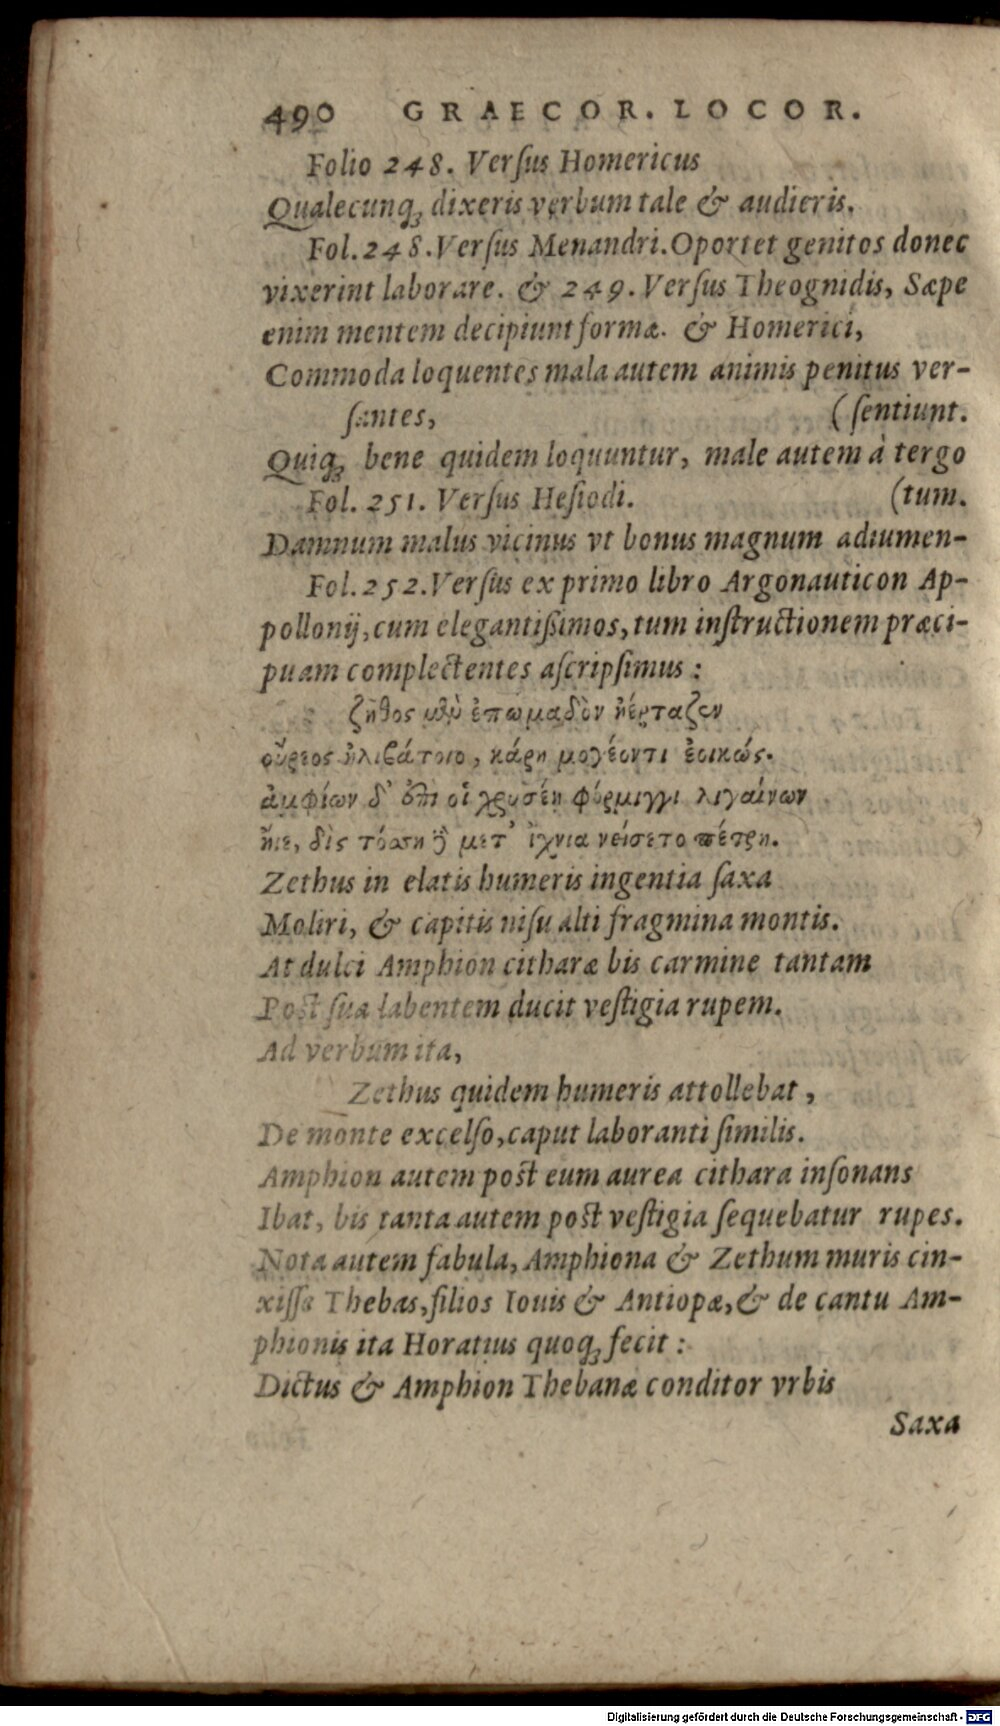 490 GRAECOR. LOCOR.
Folio 248. Verſus Homericus
Qualecunqꝫ dixeris verbum tale & audieris.
Fol. 248. Verſus Menandri. Oportet genitos donec
vixerint laborare. & 249. Verſus Theognidis, Sæpe
enim mentem decipiunt formæ. & Homerici,
Commoda loquentes mala autem animis penitus ver-
ſantes, (ſentiunt.
Quiqꝫ bene quidem loquuntur, male autem à tergo
Fol. 251. Verſus Heſiodi. (tum.
Damnum malus vicinus vt bonus magnum adiumen-
Fol. 252. Verſus ex primo libro Argonauticon Ap-
pollonij, cum elegantißimos, tum inſtructionem præci-
puam complectentes aſcripſimus:
ζῆθος μὲν ἐπωμαδὸν ἠέρταζεν
οὔρεος ἠλιβάτοιο, κάρη μογέοντι ἐοικώς.
ἀμφίων δ' ἐπι οἷ χρυσέη φόρμιγγι λιγαίνων
ἤϊε, δὶς τόσση ἢ μετ' ἴχνια νείσετο πέτρη.
Zethus in elatis humeris ingentia ſaxa
Moliri, & capitis niſu alti fragmina montis.
At dulci Amphion citharæ bis carmine tantam
Poſt ſua labentem ducit veſtigia rupem.
Ad verbum ita,
Zethus quidem humeris attollebat,
De monte excelſo, caput laboranti ſimilis.
Amphion autem poſt eum aurea cithara inſonans
Ibat, bis tanta autem poſt veſtigia ſequebatur rupes.
Nota autem fabula, Amphiona & Zethum muris cin-
xiſſe Thebas, filios Iouis & Antiopæ, & de cantu Am-
phionis ita Horatius quoqꝫ fecit:
Dictus & Amphion Thebanæ conditor vrbis
Saxa
Digitalisierung gefördert durch die Deutsche Forschungsgemeinschaft - DFG